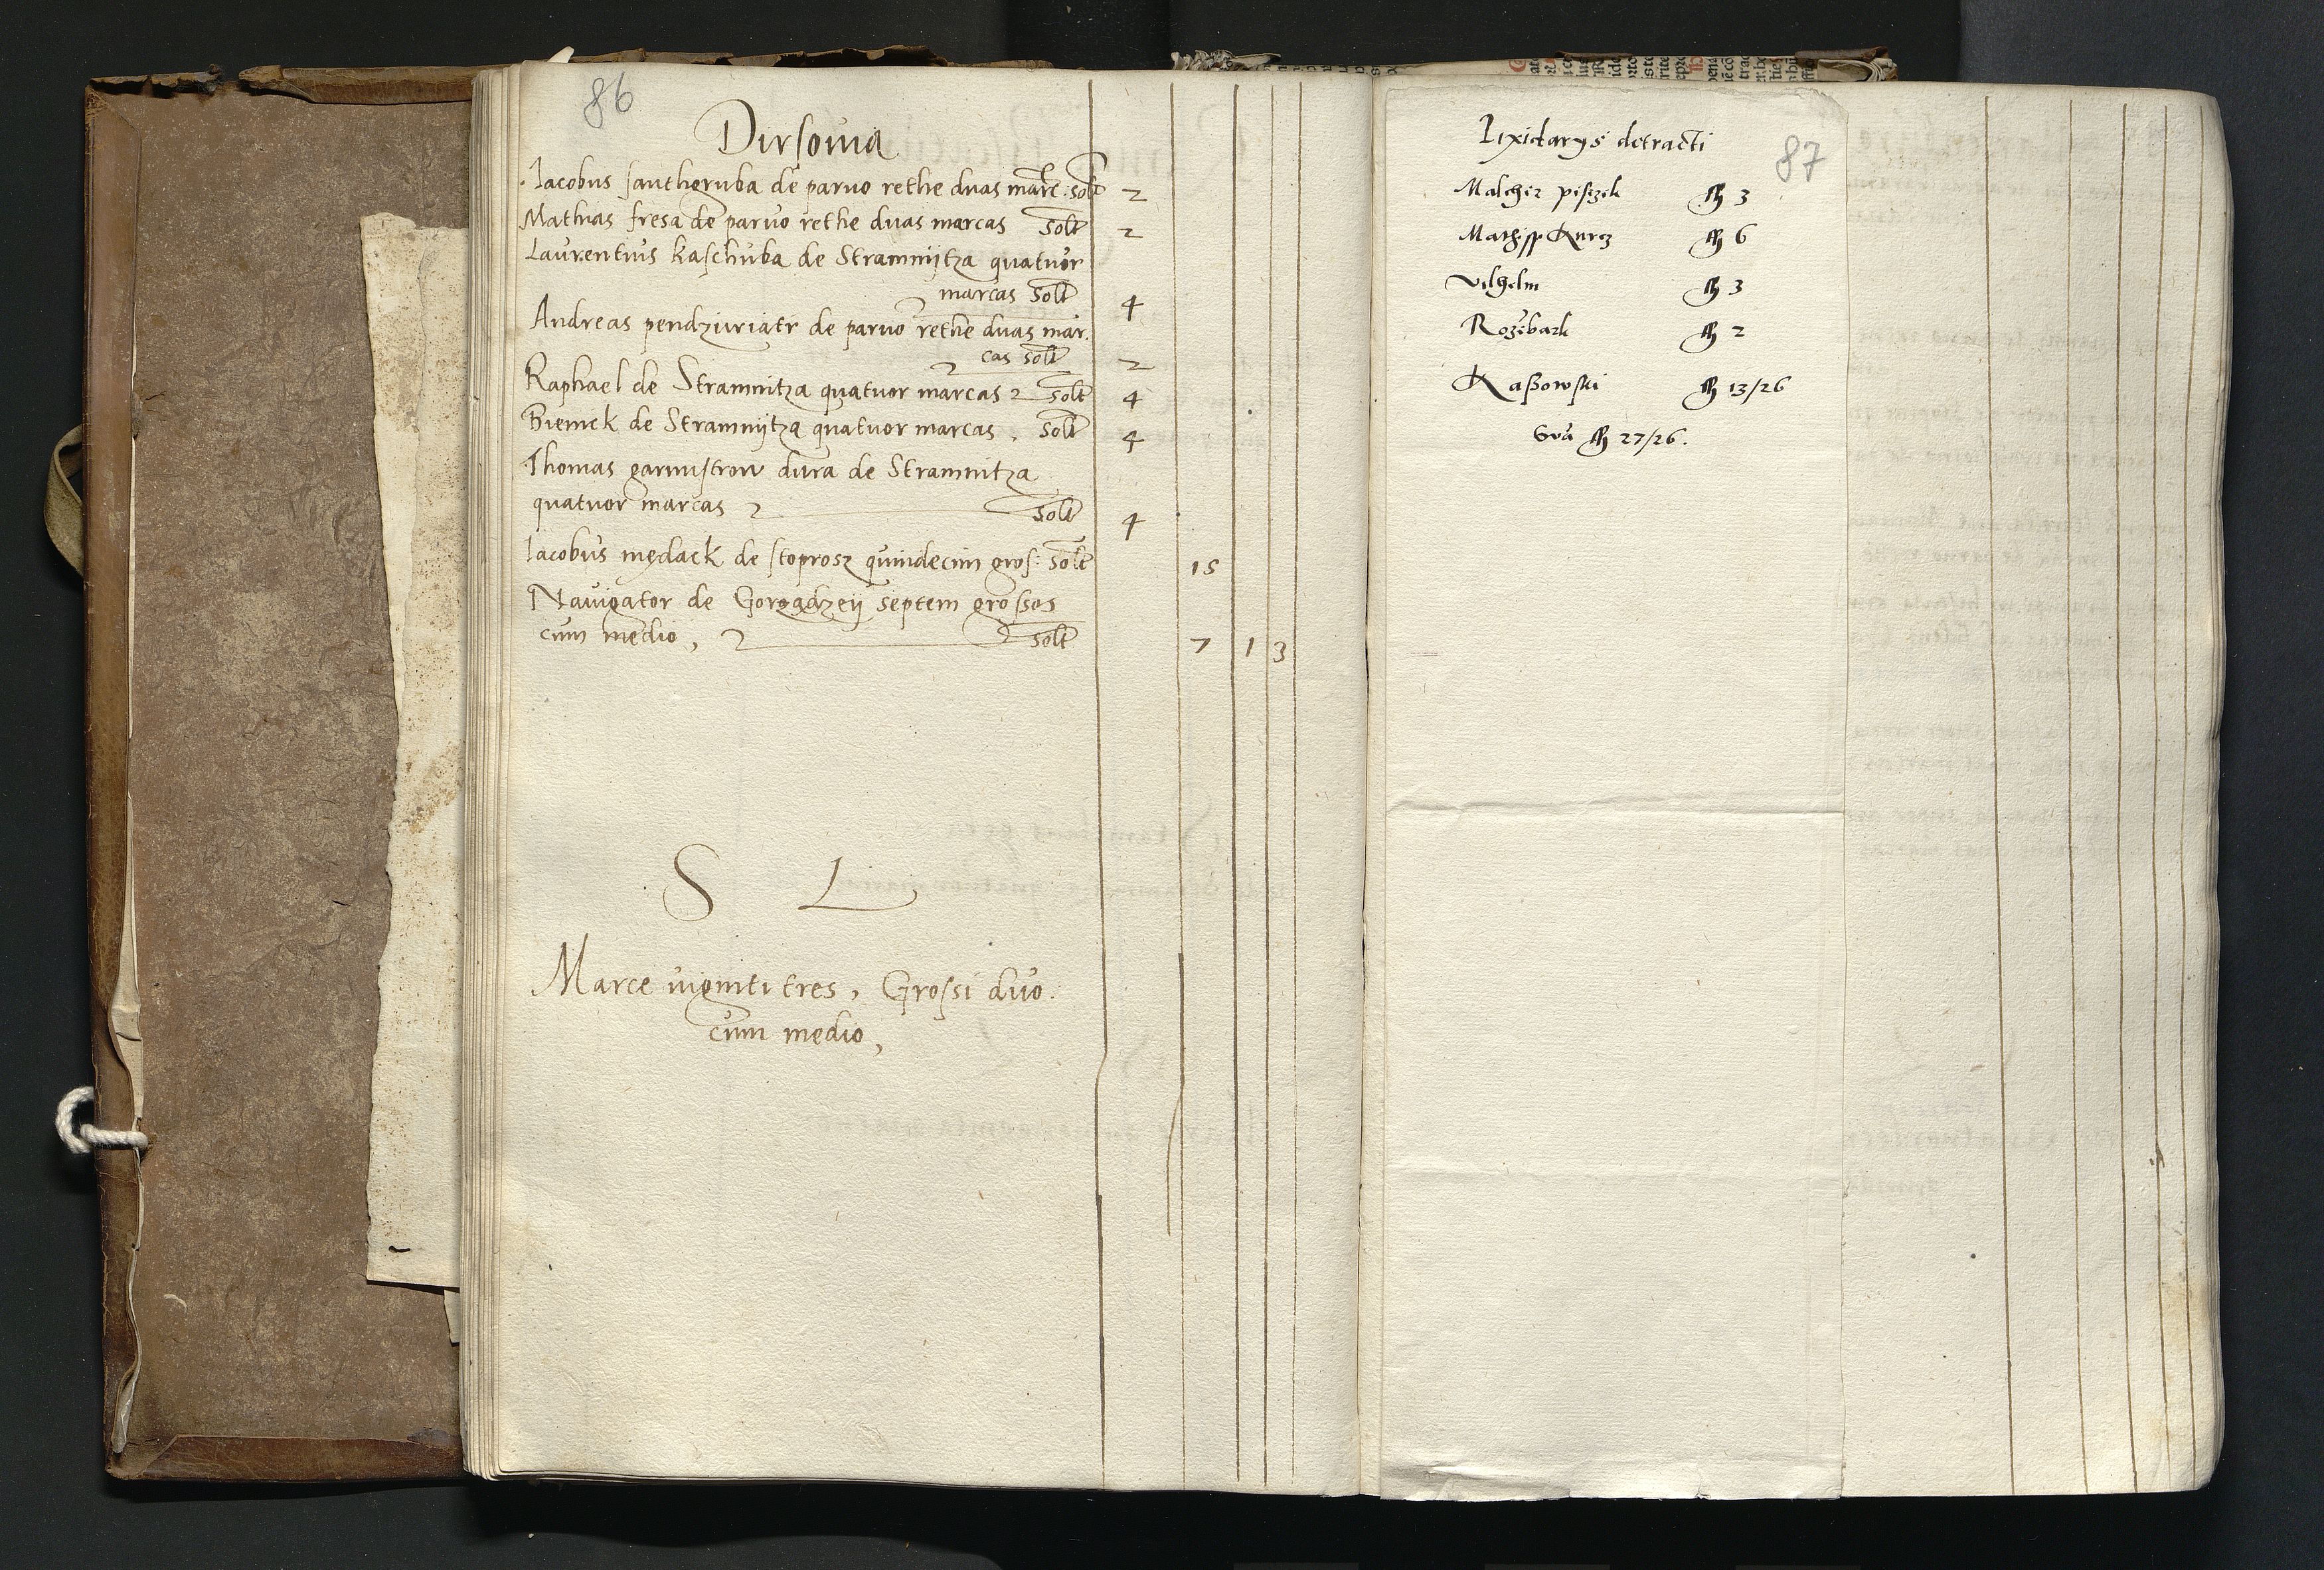 86
Dirsovia
Iacobus santheruba de paruo rethe duas marc: solt 2
Mathias fresa de paruo rethe duas marcas solt 2
Laurentius kaschuba de Stramnijtza quatuor
marcas solt 4
Andreas pendziwiatr de paruo rethe duas mar.
cas solt 2
Raphael de Stramnitza quatuor marcas solt 4
Bienick de Stramnijtza quatuor marcas, solt 4
Thomas garnustrow dura de Stramnitza
quatuor marcas solt 4
Iacobus mędack de stoprosz quindecim gros: solt 15
Nauigator de Gorządzeij septem grossos
cum medio, solt 7 1 3
S L
Marce uiginti tres, Grossi duo.
cum medio,
87
Pixidarys detracti
Malcher piszek 3
Mathis Kurcz 6
Vilhelm 3
Rozěbark 2
Kaßowski 13/26
27/26.